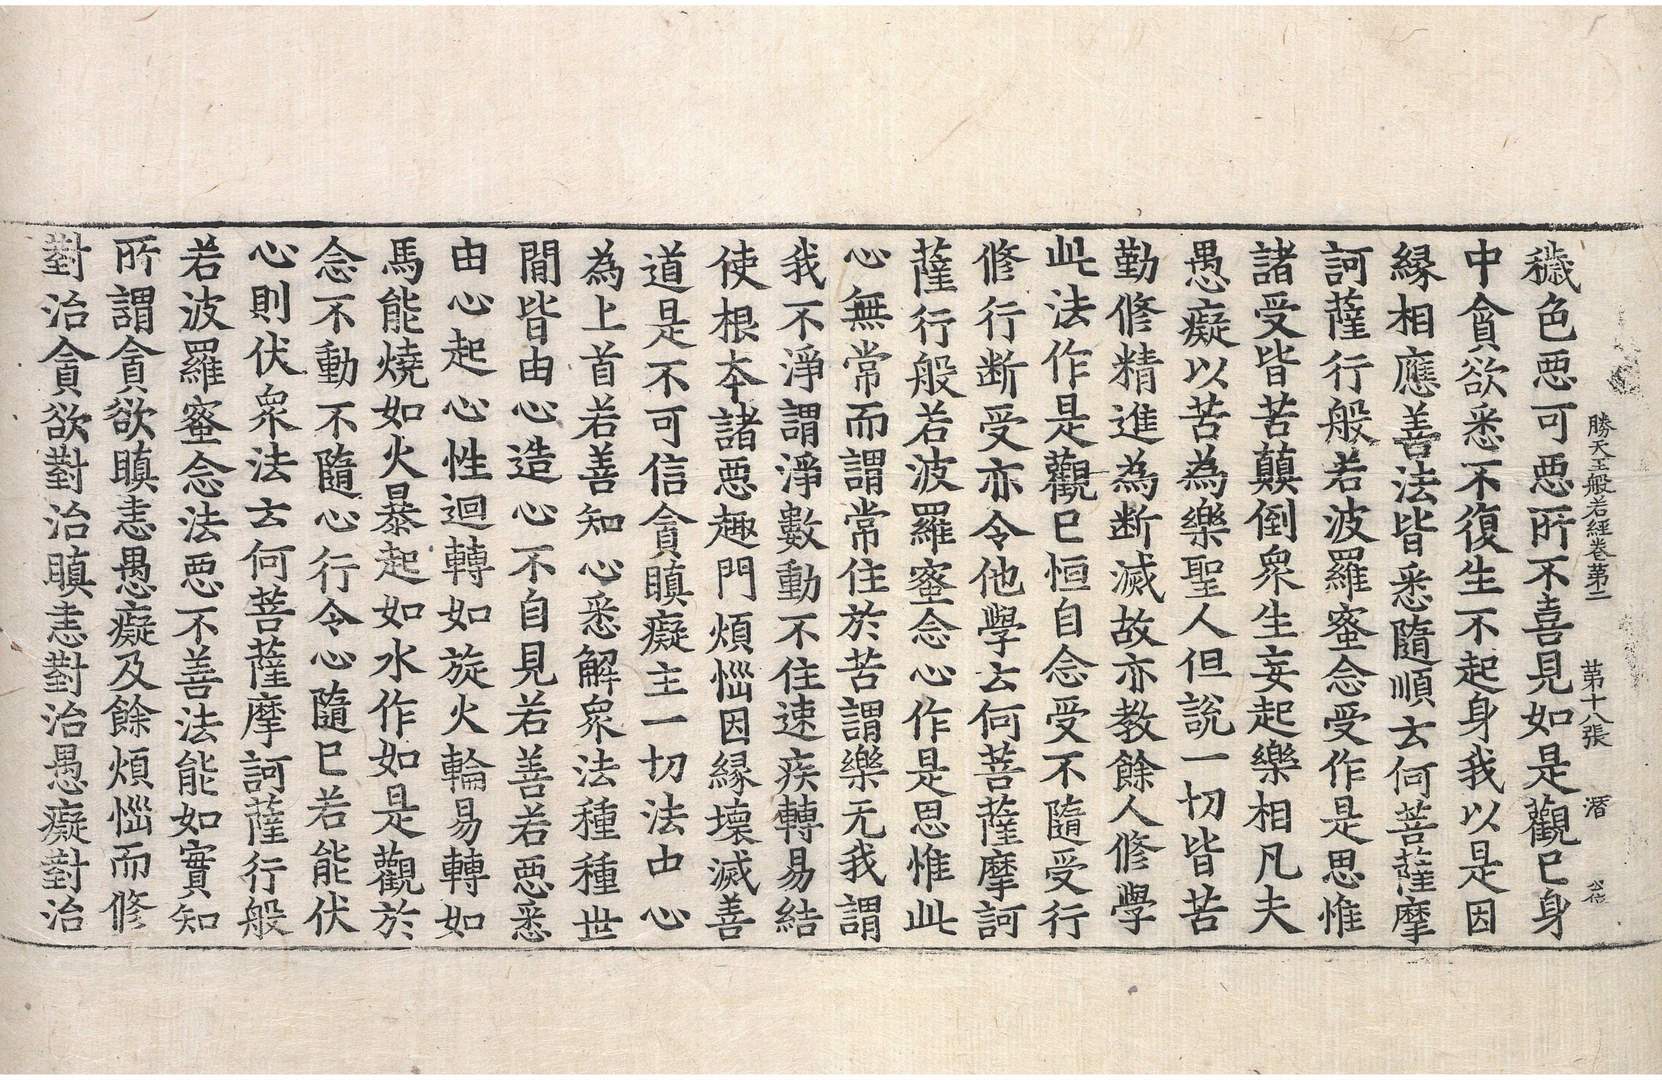 勝天王般若經卷第二 第十八張 潛
穢色惡可惡所不喜見如是觀已身
中貪欲悉不復生不起身我以是因
緣相應善法皆悉隨順云何菩薩摩
訶薩行般若波羅蜜念受作是思惟
諸受皆苦顛倒衆生妄起樂相凡夫
愚癡以苦為樂聖人但說一切皆苦
勤修精進為斷滅故亦教餘人修學
此法作是觀已恒自念受不隨受行
修行斷受亦令他學云何菩薩摩訶
薩行般若波羅蜜念心作是思惟此
心無常而謂常住於苦謂樂无我謂
我不淨謂淨數動不住速疾轉易結
使根本諸惡趣門煩惱因緣壞滅善
道是不可信貪瞋癡主一切法中心
為上首若善知心悉解衆法種種世
間皆由心造心不自見若善若惡悉
由心起心性迴轉如旋火輪易轉如
馬能燒如火暴起如水作如是觀於
念不動不隨心行令心隨已若能伏
心則伏衆法云何菩薩摩訶薩行般
若波羅蜜念法惡不善法能如實知
所謂貪欲瞋恚愚癡及餘煩惱而修
對治貪欲對治瞋恚對治愚癡對治